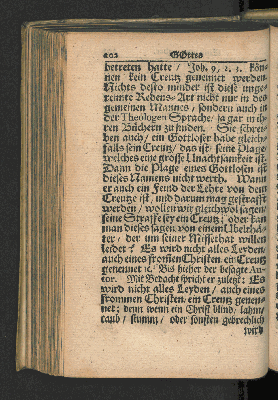 202 GOttes
betreten hatte / Joh. 9, 2. 3. kön-
nen kein Creutz genennet werden.
Nichts desto minder ist diese unge-
reimte Redens-Art nicht nur in des
gemeinen Mannes, sondern auch in
der Theologen Sprache, ja gar in ih-
ren Büchern zu finden. Sie schrei-
ben auch / ein Gottloser habe gleich-
falls sein Creutz / das ist / seine Plage
welches eine grosse Unachtsamkeit ist.
Dann die Plage eines Gottlosen ist
dieses Namens nicht werth. Wann
er auch ein Feind der Lehre von dem
Creutze ist / und darum mag gestrafft
werden / wollen wir gleichwol sagen/
seine Straffe sey ein Creutz; oder kan
man dieses sagen von einem Ubelthä-
ter / der um seiner Missethat willen
leidet? Es wird nicht alles Leyden
auch eines frommen Christen ein Creutz
genennet ꝛc. Bis hieher der besagte Au-
tor. Mit Bedacht spricht er zuletzt: Es
wird nicht alles Leyden / auch eines
frommen Christen / ein Creutz genen-
net; denn wenn ein Christ blind / lahm/
taub / stumm / oder sonsten gebrechlich
wird